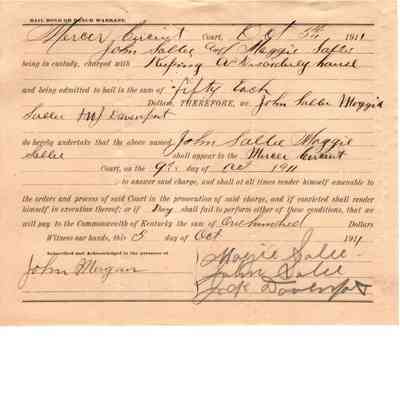 BAIL BOND ON BENCH WARRANT.
Mercer Circuit Court, Oct 5th 1911
John Sallee and Maggie Sallee
being in custody, charged with Keeping a disorderly house
and being admitted to bail in the sum of fifty Each
Dollars, THEREFORE, we John Sallee Maggie
Sallee Davenport
do hereby undertake that the above named John Sallee Maggie
Sallee shall appear in the Mercer Circuit
Court, on the 9th day of Oct 1911
, to answer said charge, and shall at all times render himself amenable to
the orders and process of said Court in the prosecution of said charge, and if convicted shall render
himself in execution thereof; or if they shall fail to perform either of these conditions, that we
will pay to the Commonwealth of Kentucky the sum of One hundred Dollars
Witness our hands, this 5 day of Oct 1911
Subscribed and Acknowledged in the presence of
John Morgan
Maggie Salee
John Salee
Jack Davenport